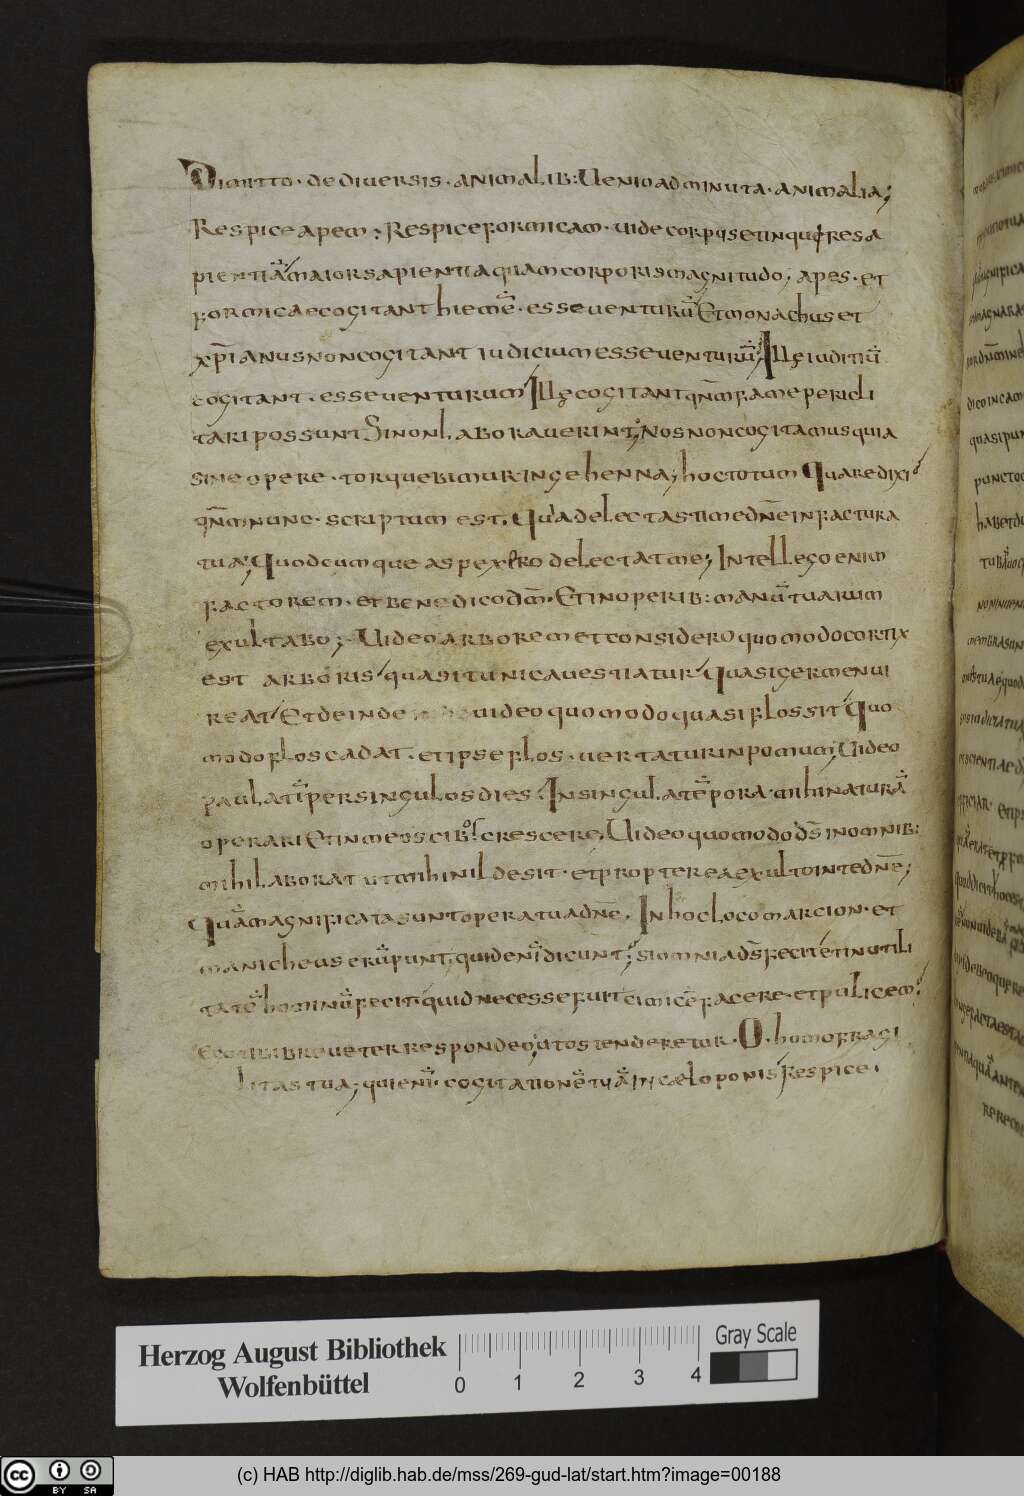 Dimitto · de diuersis · animalib: Uenio ad minuta · animalia;
Respice apem; Respice formicam · uide corpus et in quo res a
pientiā maior sapientia quam corporis magnitudo; apes · et
formicae cogitant hiemē · esse uenturū Et monachus et
xp̄ianus non cogitant iudicium esse uenturū; Ille iuditiū
cogitant · esse uenturum Ille cogitant qn̄m fame pericli
tari possunt Si non laborauerint; Nos non cogitamus quia
sine opere · torquebimur in gehenna; hoc totum Quare dixi
qn̄m nunc · scriptum est, Quia delectasti me dn̄e in factura
tua; Quodcumque aspexero delectat me; Intellego enim
factorem · et benedico dm̄ · Et in operib: manuū tuarum
exultabo; Uideo arborem et considero quomodo cortix
est arboris quasi tunica uestiatur Quasi germen ui
reat Et deinde uideo quomodo quasi flos sit Quo
modo flos cadat · et ipse flos · uertatur in pomum; Uideo
paulatī per singulos dies · In singula tēpora · mihi naturā
operari Et in me os cibos crescere, Uideo quomodo ds̄ in omnib:
mihi laborat ut mihi nil desit · et propterea exulto in te dn̄e;
Quā magnificata sunt opera tua dn̄e, In hoc loco marcion · et
manicheus erūpunt, quid enī dicunt; si omnia ds̄ fecit et in utili
tatē hominū fecit quid necesse fuit cimicē facere · et pulicem;
Ecce tibi breueter respondeo, ut ostenderetur · O · homo fragi
litas tua; qui enī cogitationē tuā in cælo ponis Respice ·
Herzog August Bibliothek
Wolfenbüttel
0 1 2 3 4
Gray Scale
cc BY SA
(c) HAB http://diglib.hab.de/mss/269-gud-lat/start.htm?image=00188